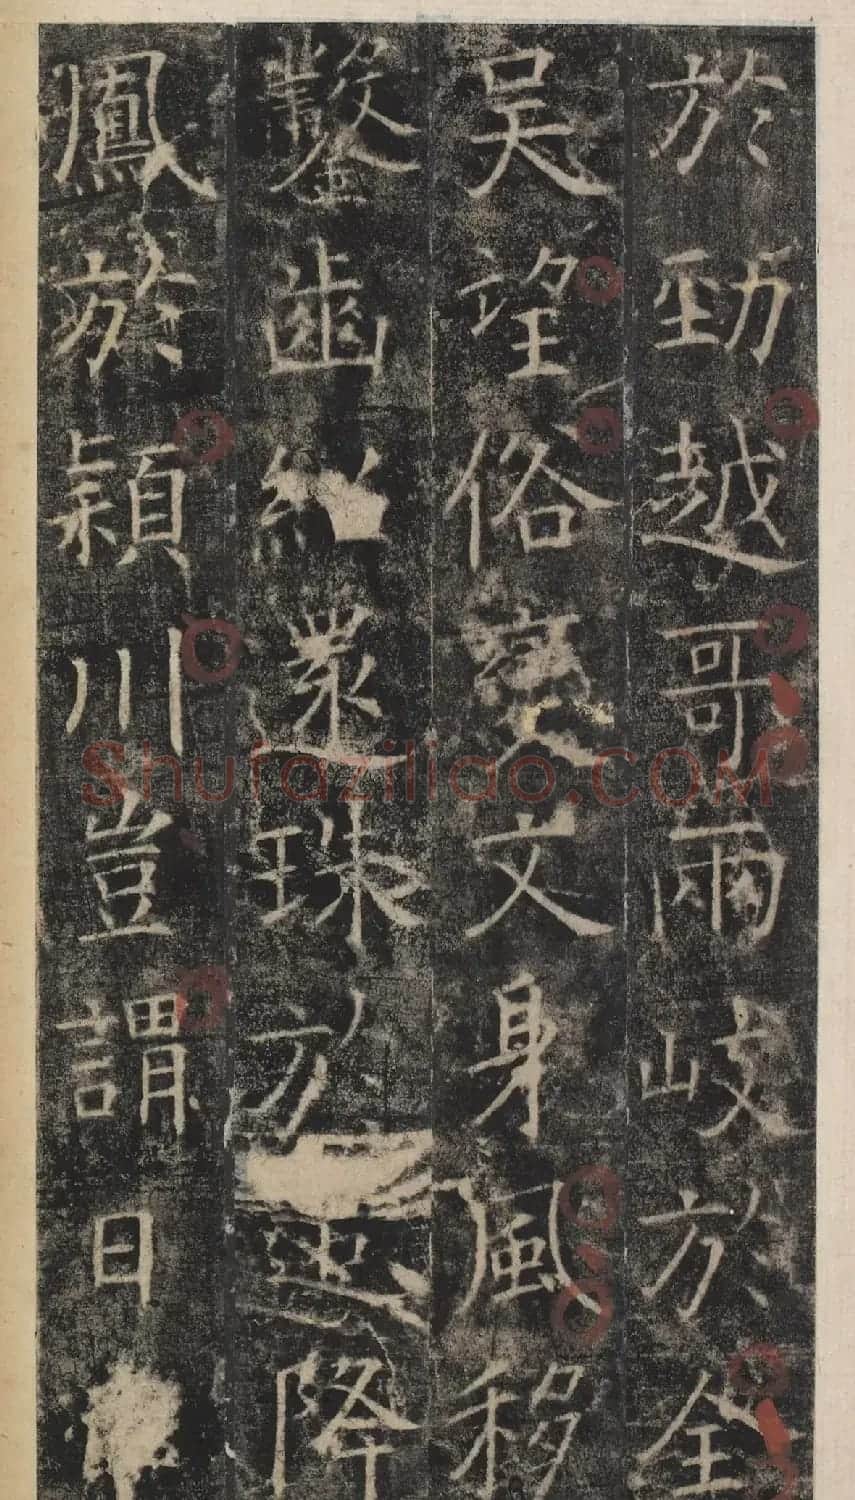 於勁越哥雨岐於全
吳望俗變文身風移
鑿齒還珠於降
鳳於穎川豈謂日
Shufaziliao.COM